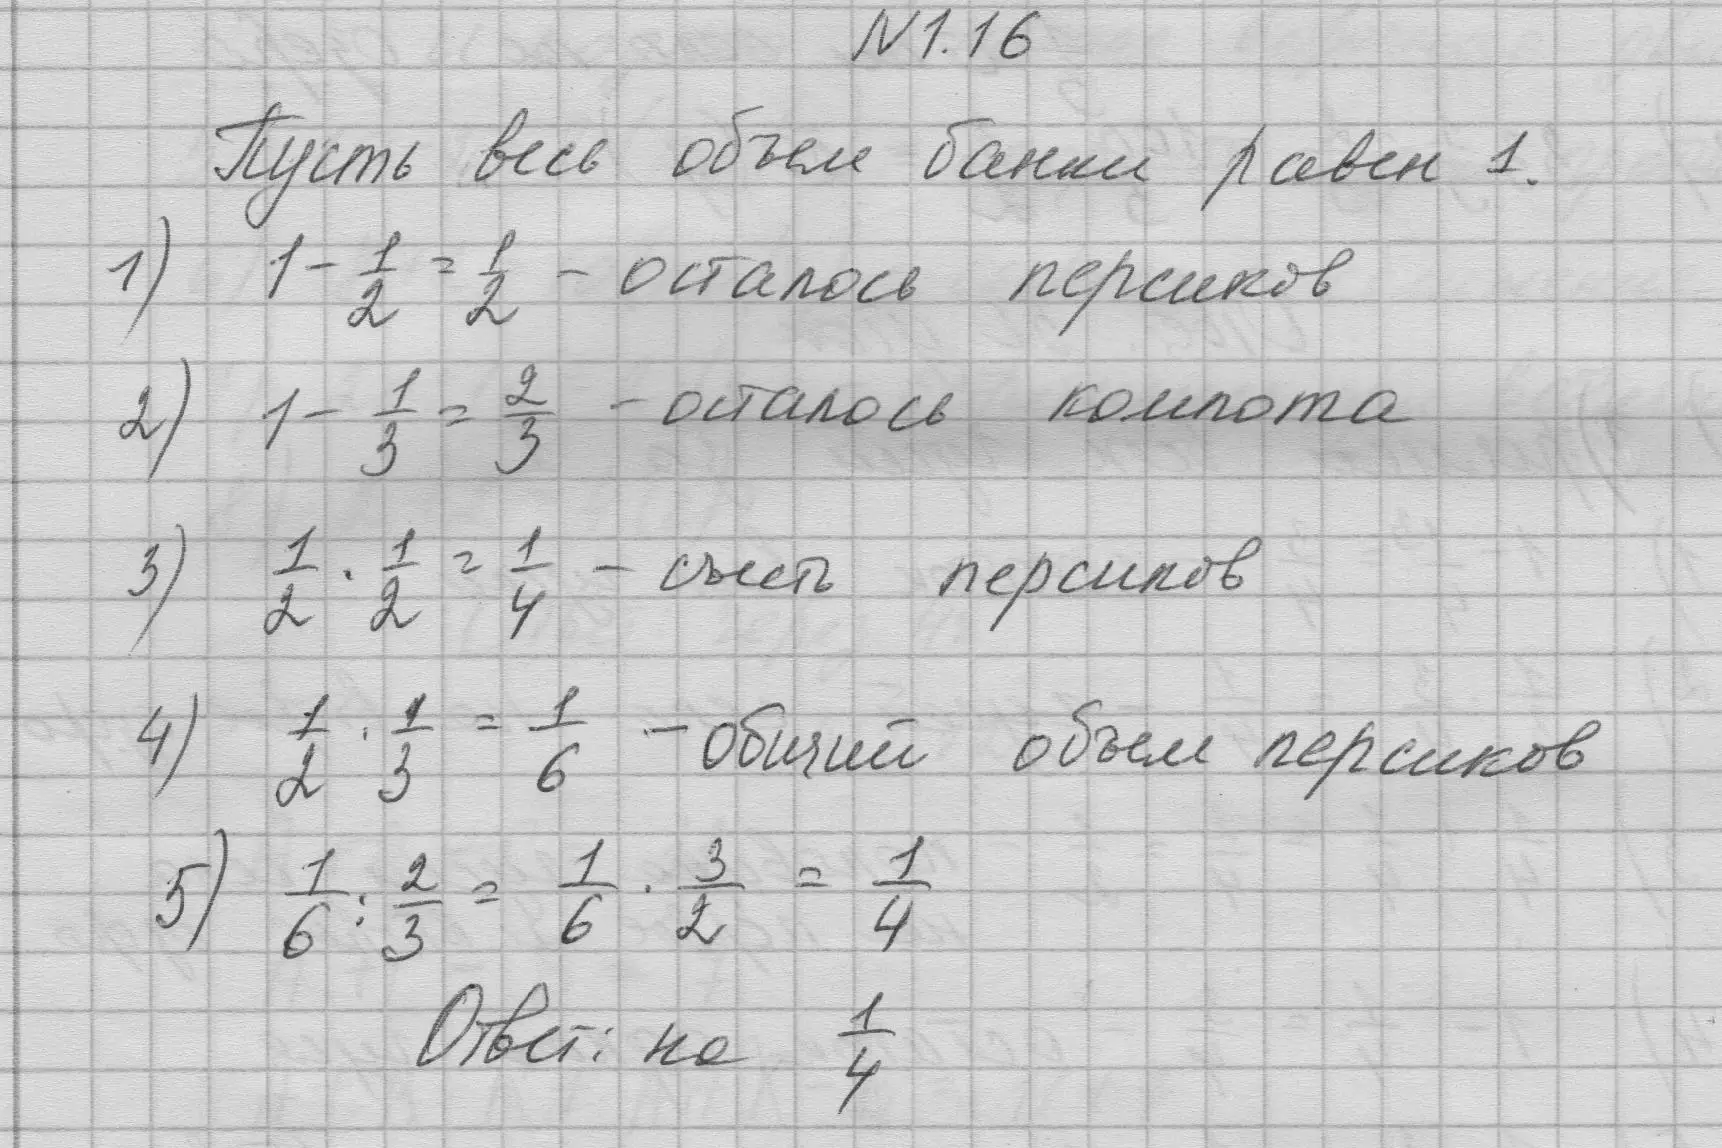 N1.16
Пусть весь объем банки равен 1.
1) 1 - 1/2 = 1/2 - осталось персиков
2) 1 - 1/3 = 2/3 - осталось компота
3) 1/2 · 1/2 = 1/4 - съесть персиков
4) 1/2 · 1/3 = 1/6 - общий объем персиков
5) 1/6 : 2/3 = 1/6 · 3/2 = 1/4
Ответ: на 1/4